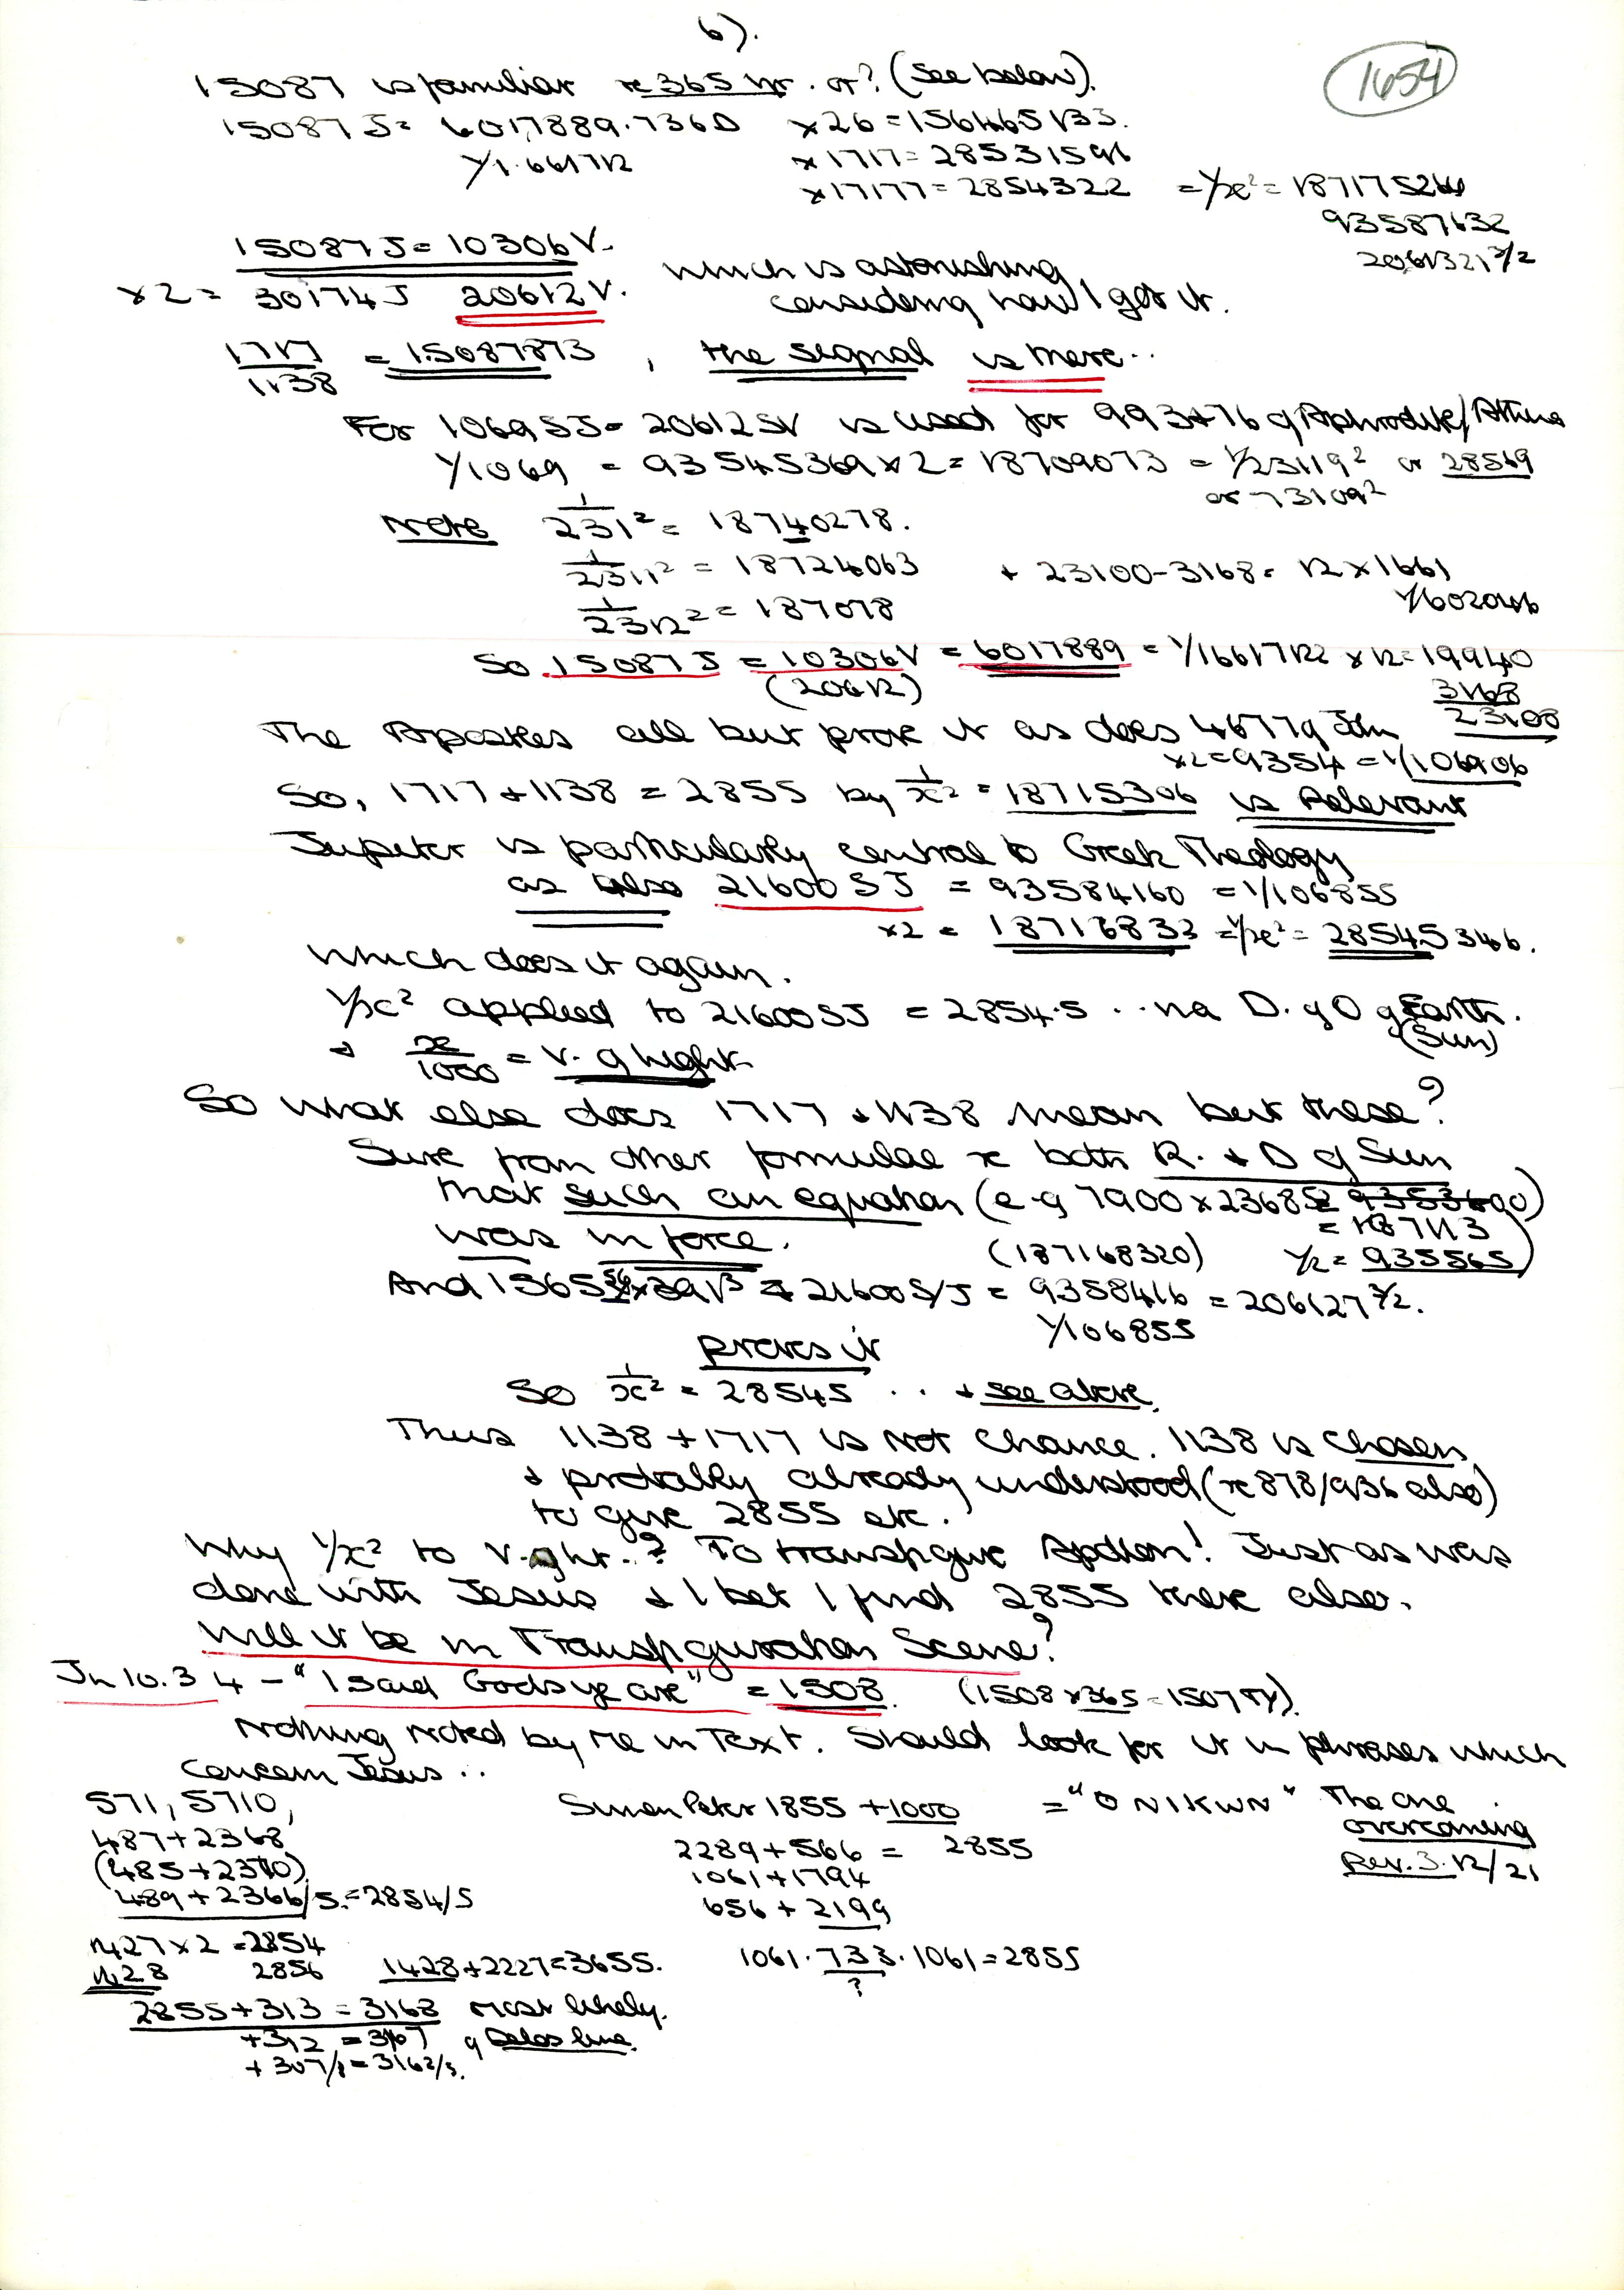 6).
1654
15087 is familiar re 365 yr. or? (See below).
15087 J = 6017889.736D x26 = 156465133.
1/1.661712 x1717 = 28531591
x17177 = 2854322 = 1/x² = 187175264
93587632
15087 J = 10306 V.
x2 = 30174 J 20612 V. which is astonishing
considering how I got it.
1717/1138 = 1.5087873, the signal is there..
For 1069 SJ = 20612 SV is used for 993+76 of Aphrodite/
1/1069 = 93545369 x 2 = 18709073 = 1/23119² or 28569
or 73109²
Note 1/231² = 18740278.
1/2311² = 18724063 + 23100-3168 = 12 x 1661
1/2312² = 187078
So 15087 J = 10306 V = 6017889 = 1/1661712 x 12 = 19940
(20612) 3168
23108
The Apostles all but prove it as does 4677 of John
x2 = 9354 = 1/106906
So, 1717 + 1138 = 2855 by 1/x² = 18715306 is Relevant
Jupiter is particularly central to Greek Theology
as also 21600 SJ = 93584160 = 1/106855
x2 = 18716832 = 1/x² = 28545346.
Which does it again.
1/x² applied to 21600 SJ = 2854.5 .. via D. of O of Earth.
(Sun)
+ x/1000 = V. of light.
So what else does 1717 + 1138 mean but these?
Sure from other formulae re both R. + D of Sun
that such an equation (e.g 7900 x 23685
= 187113
was in force. (187168320) 1/2 = 935565)
21600 S/J = 9358416 = 206127
1/106855
proves it
So 1/x² = 28545 .. + see above.
Thus 1138 + 1717 is not chance. 1138 is chosen
+ probably already understood (re 878/936 also)
to give 2855 etc.
Why 1/x² to V. of ht.? To transfigure Apollon! Just as was
done with Jesus + I bet I find 2855 there also.
Will it be in Transfiguration Scene?
Jn 10.34 - "I said Gods ye are" = 1508.
Nothing noted by me in Text. Should look for it in phrases which
concern Jesus..
571, 5710, Simon Peter 1855 + 1000 = "O NIKWN" The one
overcoming
487 + 2368 2289 + 566 = 2855
Rev. 3.12/21
(485 + 2370) 1061 + 1794
489 + 2366/5. = 2854/5 656 + 2199
1427 x 2 = 2854
1428 2856 1428 + 2227 = 3655. 1061. 733. 1061 = 2855
?
2855 + 313 = 3168 most likely.
+312 = 3167 of Delos line.
+307/8 = 3162/3.